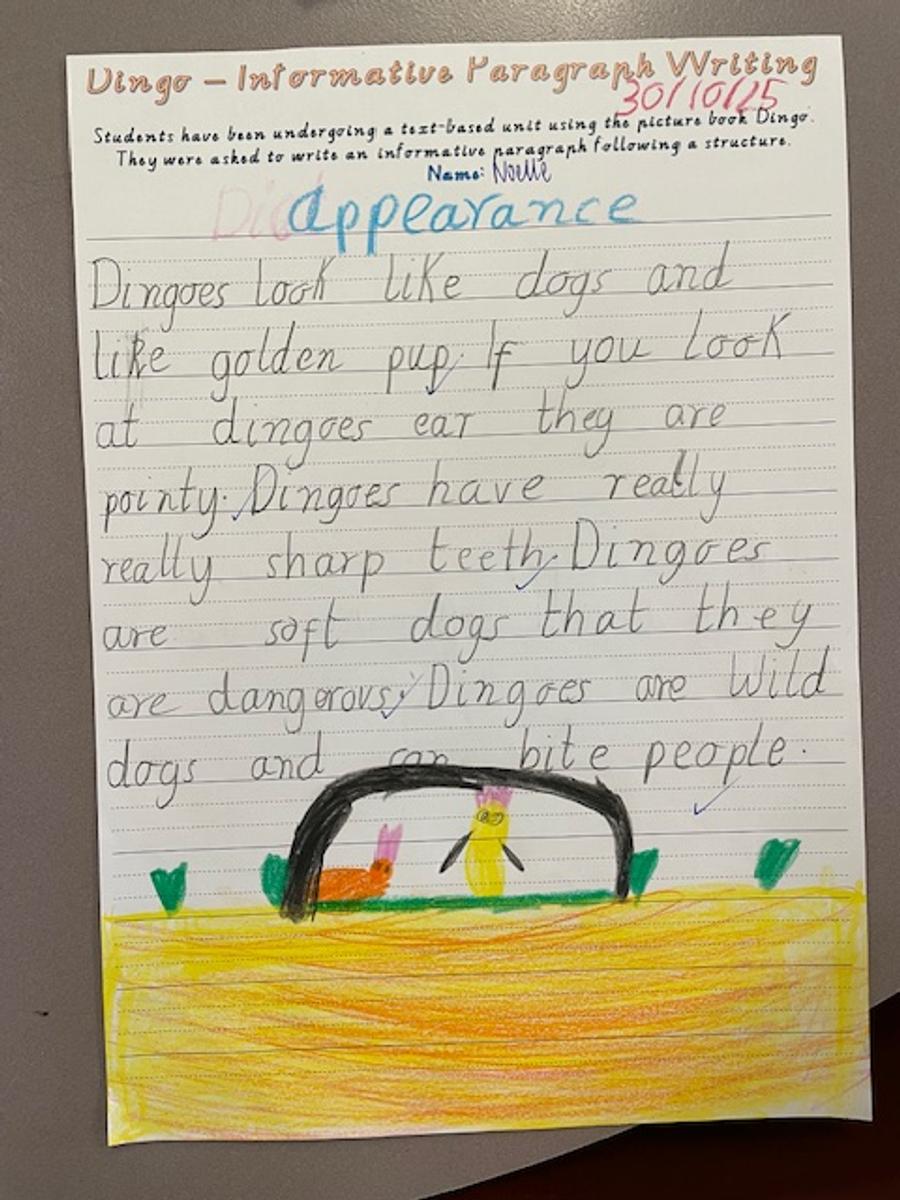 Dingo – Informative Paragraph Writing
30/10/25
Students have been undergoing a text-based unit using the picture book Dingo.
They were asked to write an informative paragraph following a structure.
Name: Noelle
appearance
Dingoes look like dogs and
like golden pup. If you look
at dingoes ear they are
pointy. Dingoes have really
really sharp teeth. Dingoes
are soft dogs that they
are dangerous. Dingoes are Wild
dogs and can bite people.